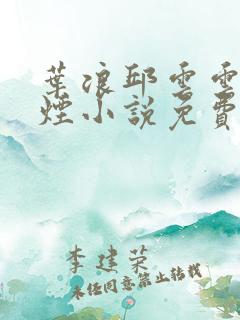 葉浪邱雲雲
煙小說免費
李建榮
未经同意禁止转载